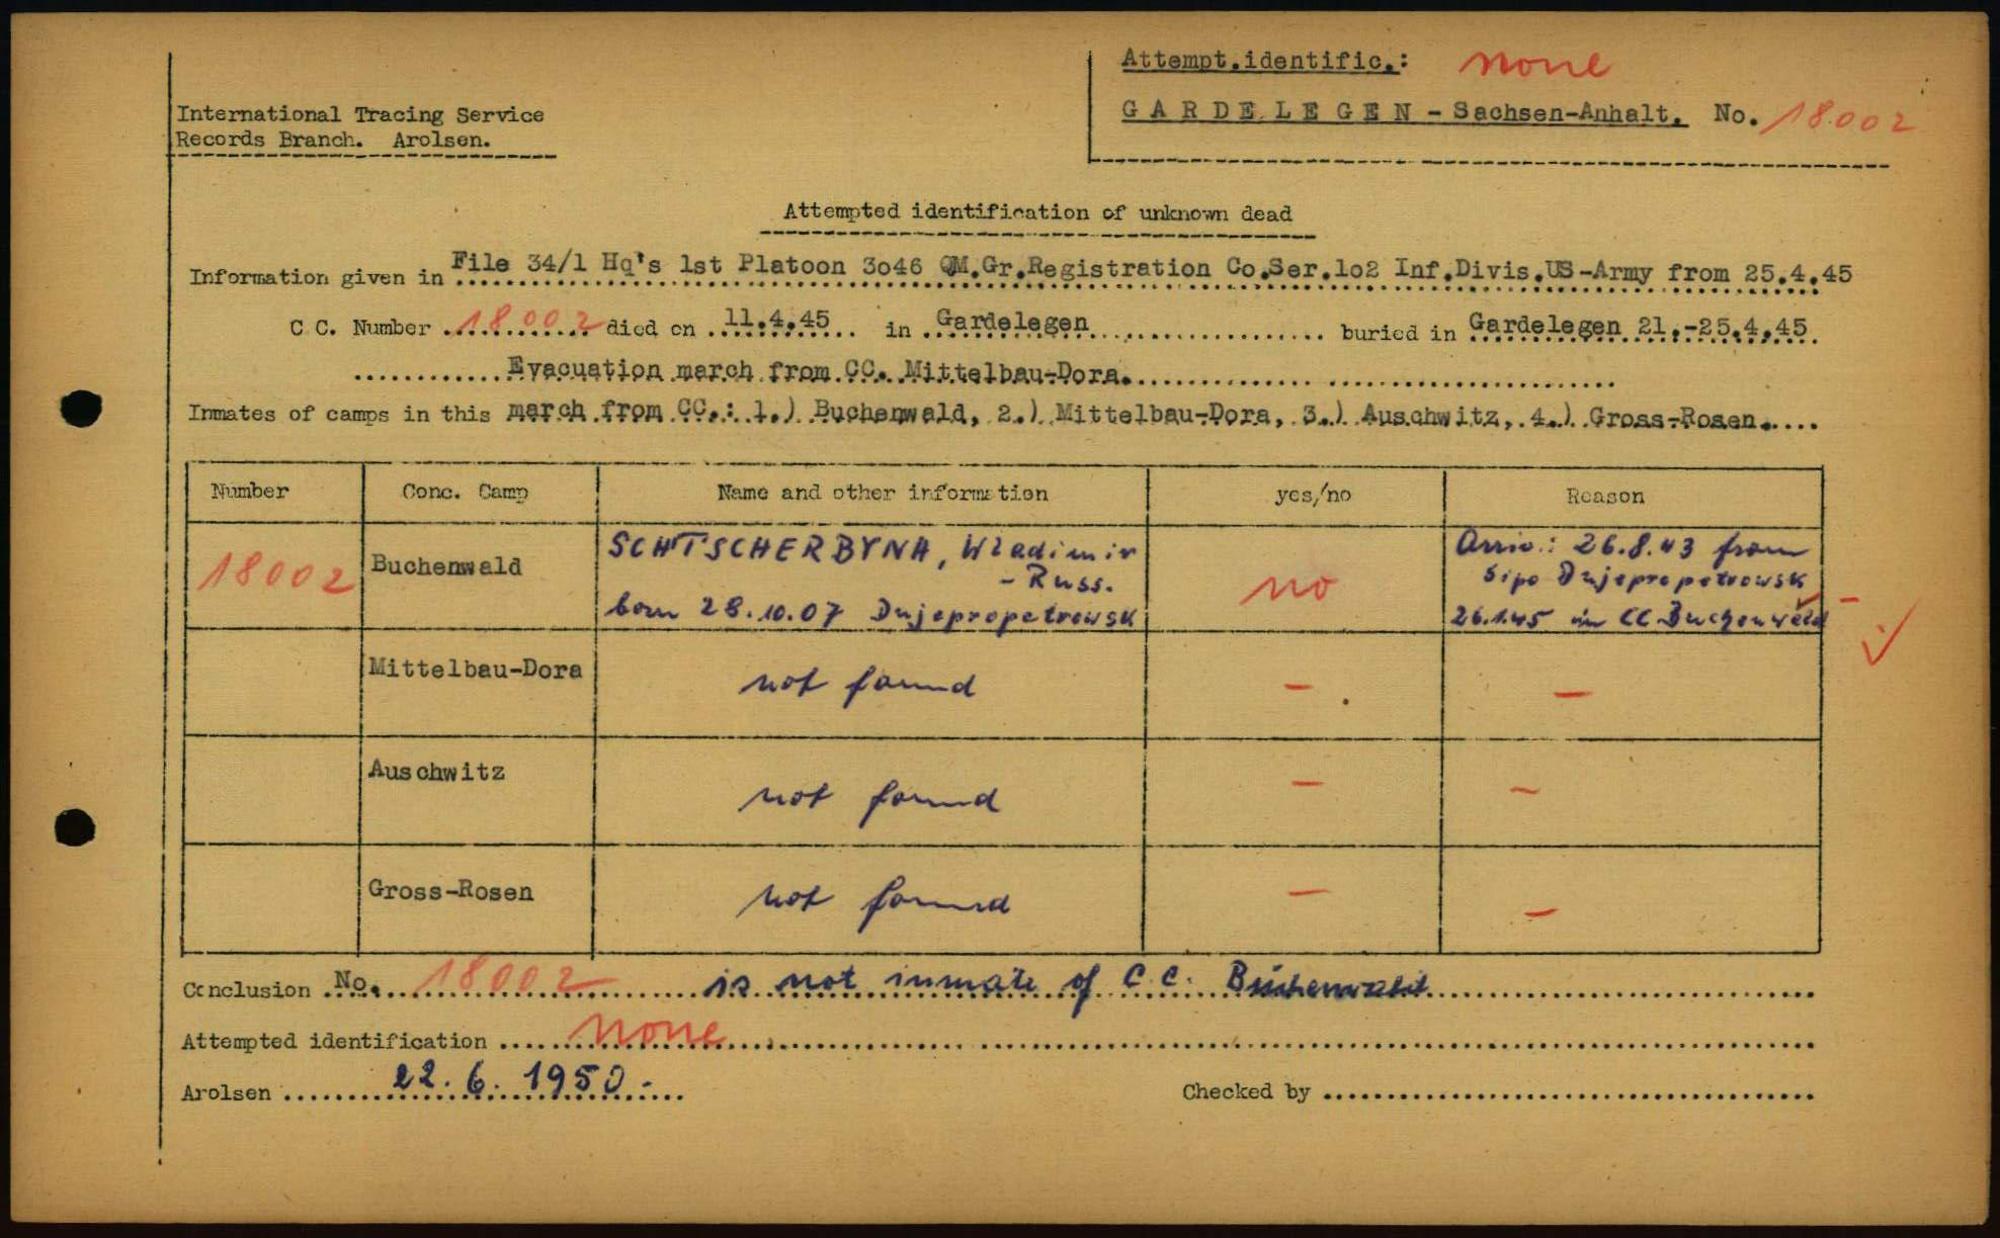 Attempt.identific.: none
International Tracing Service
Records Branch. Arolsen.
GARDELEGEN - Sachsen-Anhalt. No. 18002
Attempted identification of unknown dead
Information given in File 34/1 Hq's 1st Platoon 3o46 QM.Gr.Registration Co.Ser.1o2 Inf.Divis.US-Army from 25.4.45
C C. Number 18002 died on 11.4.45 in Gardelegen buried in Gardelegen 21.-25.4.45
Evacuation march from CC. Mittelbau-Dora.
Inmates of camps in this march from CC.: 1.) Buchenwald, 2.) Mittelbau-Dora, 3.) Auschwitz, 4.) Gross-Rosen.
Number Conc. Camp Name and other information yes/no Reason
18002 Buchenwald SCHTSCHERBYNA, Wladimir - Russ. born 28.10.07 Dnjepropetrowsk no Arriv.: 26.8.43 from Sipo Dnjepropetrowsk 26.1.45 in CC Buchenwald -
Mittelbau-Dora not found - -
Auschwitz not found - -
Gross-Rosen not found - -
Conclusion No. 18002 is not inmate of C.C. Buchenwald
Attempted identification none
Arolsen 22.6.1950.- Checked by